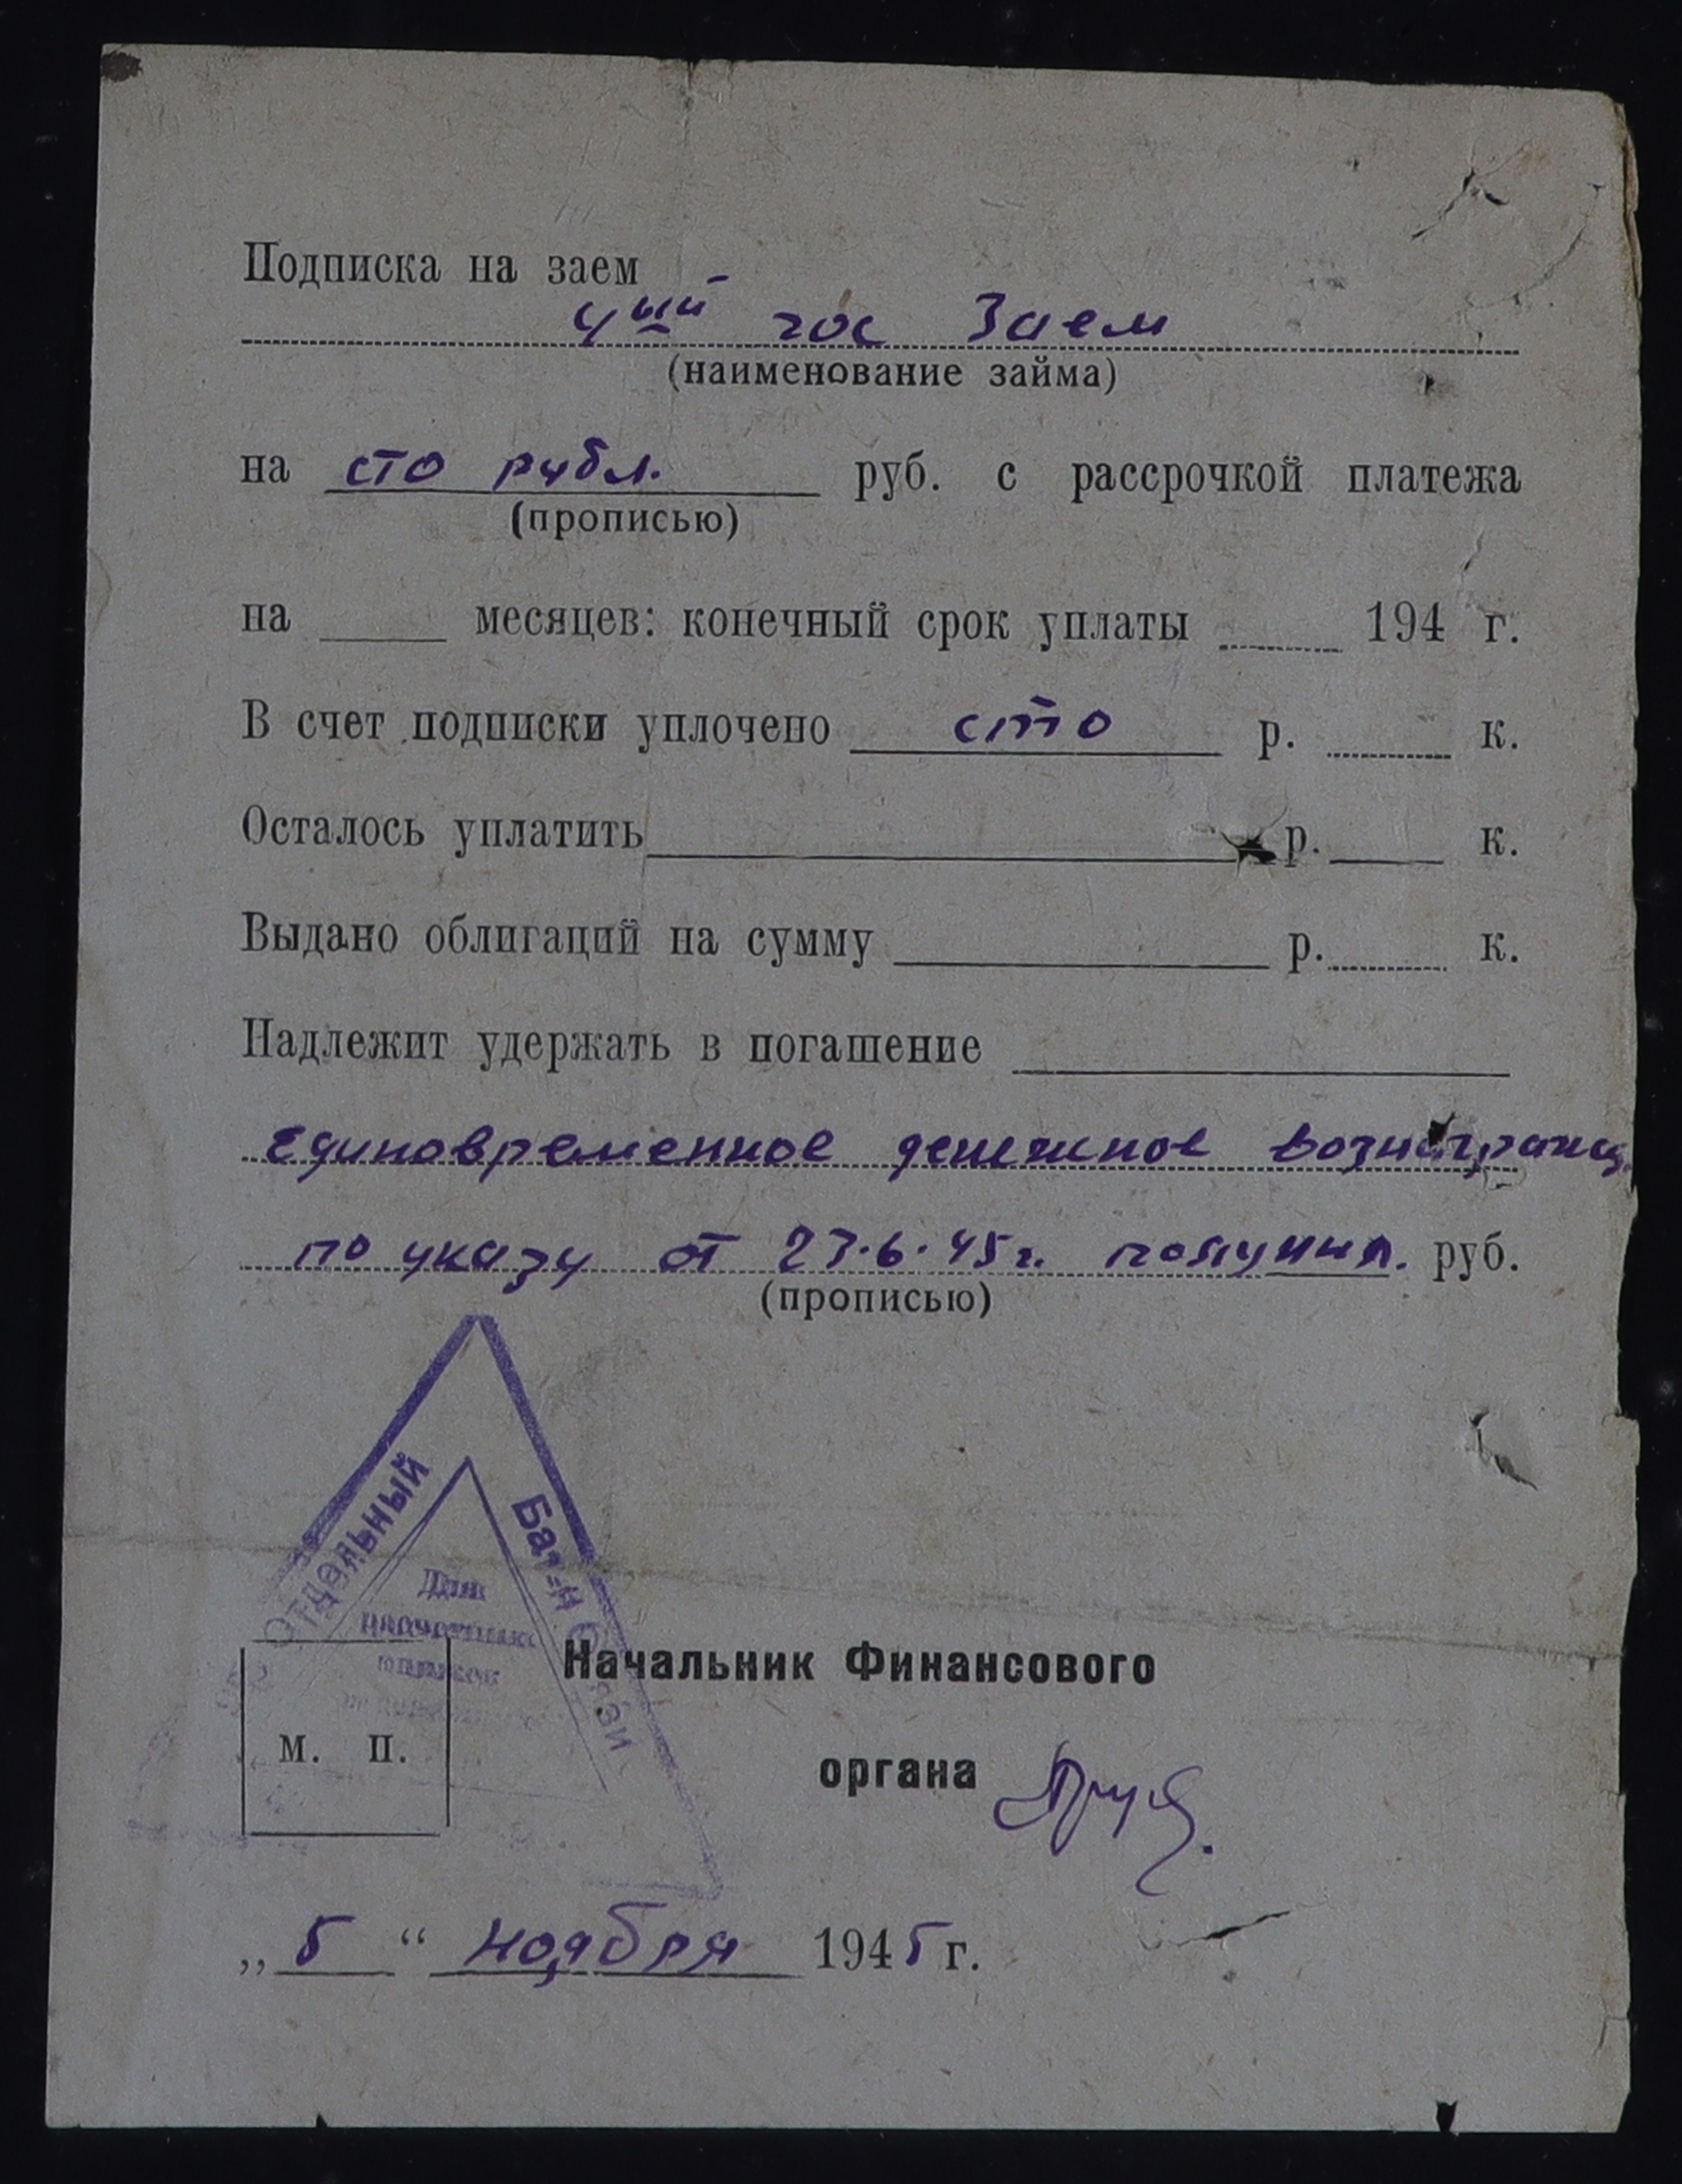 Подписка на заем
4ый гос Заем
(наименование займа)
на сто рубл. руб. с рассрочкой платежа
(прописью)
на месяцев: конечный срок уплаты 194 г.
В счет подписки уплочено сто р. к.
Осталось уплатить р. к.
Выдано облигаций на сумму р. к.
Надлежит удержать в погашение
Единовременное денежное вознагражд.
по указу от 23.6.45г. получил. руб.
(прописью)
Отдельный
Бат-н Связи
Для
Начальник Финансового
м. п.
органа
„5“ ноября 1945 г.